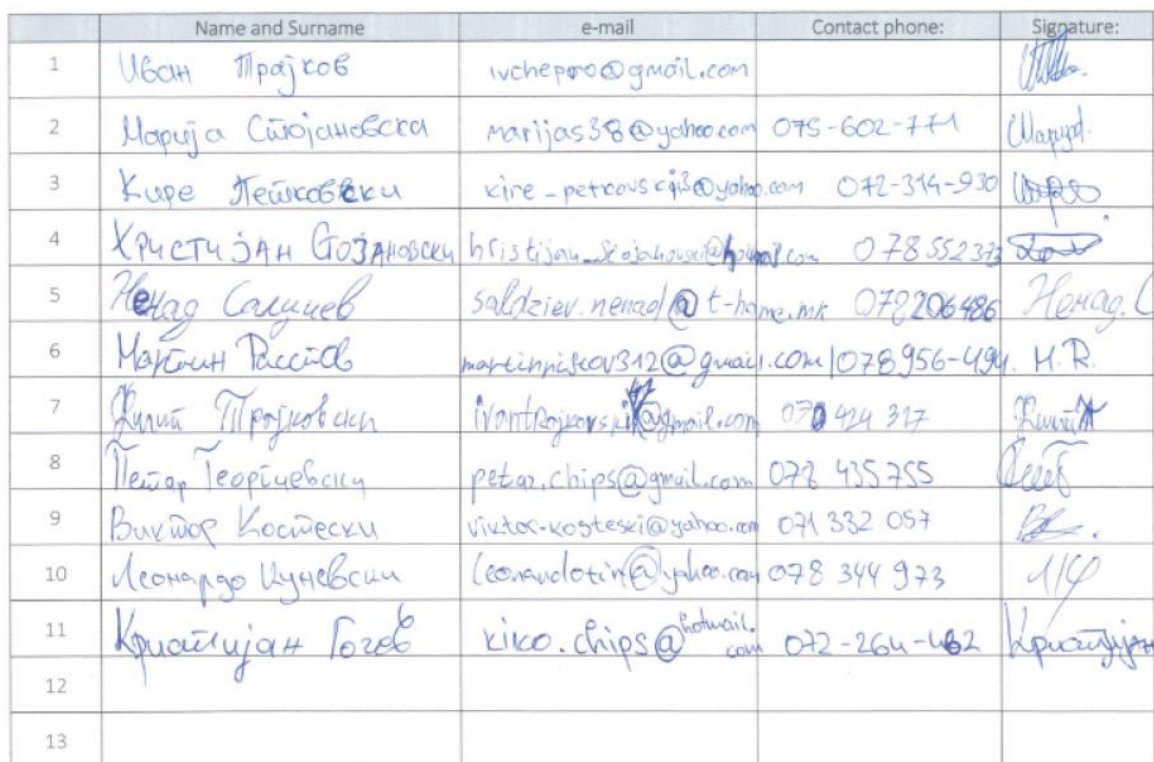 Name and Surname e-mail Contact phone: Signature:
1 Иван Трајков ivchepro@gmail.com
2 Марија Стојановска marijas38@yahoo.com 075-602-771 Марија
3 Кире Петковски kire_petkovski3@yahoo.com 072-314-930
4 Христијан Стојановски hristijan_stojanovski@hotmail.com 078 552 373
5 Ненад Салџиев saldziev.nenad@t-home.mk 078206486 Ненад.С
6 Мартин Ристов martinristov312@gmail.com 078956-494 М.R.
7 Трајковски ivantrajkovski@gmail.com 070 424 317
8 Петар Георгиевски petar.chips@gmail.com 078 435 755
9 Виктор Костески viktor-kosteski@yahoo.com 071 332 057
10 Леонардо Куневски leonardotin@yahoo.com 078 344 973
11 Кристијан Гогов kiko.chips@hotmail.com 072-264-462 Кристијан
12
13